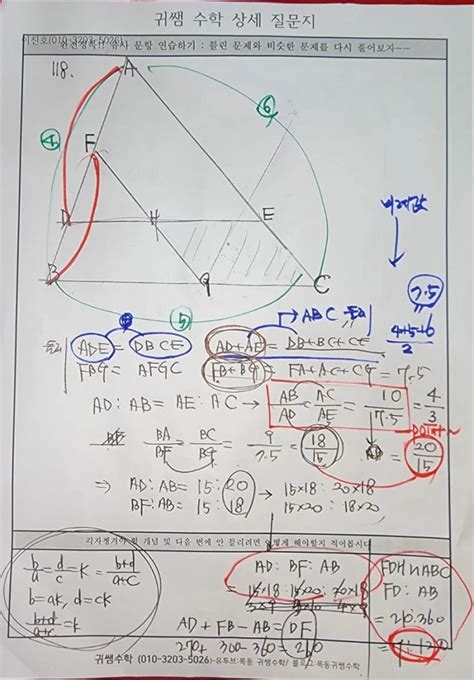 귀쌤 수학 상세 질문지
이신호(010-3203-5026)
유사 문항 연습하기 : 틀린 문제와 비슷한 문제를 다시 풀어보자~~
118.
A
④
⑥
F
D
H
E
B
G
C
⑤
비례값
7.5
4+5+6
2
ABC 둘레
ADE = DBCE
AD+AE = DB+BC+CE
FBG = AFGC
FB+BG = FA+AC+CG = 7.5
AD : AB = AE : AC → AB/AD = AC/AE = 10/7.5 = 4/3
POINT~
BA/BF = BC/BG = 9/7.5 = 18/15
= 20/15
⇒ AD : AB = 15 : 20 → 15×18 : 20×18
BF : AB = 15 : 18 15×20 : 18×20
각자 챙겨야 할 개념 및 다음 번에 안 틀리려면 어떻게 해야할지 적어봅시다
b/a = d/c = K = b+d/a+c
b=ak, d=ck
b+d/a+c = k
AD : BF : AB
AD + FB - AB = DF
270+ 300-360 = 210
FDH ∽ ABC
FD : AB
= 210:360
= 7:12
귀쌤수학 (010-3203-5026)-유투브:목동 귀쌤수학/ 블로그:목동귀쌤수학